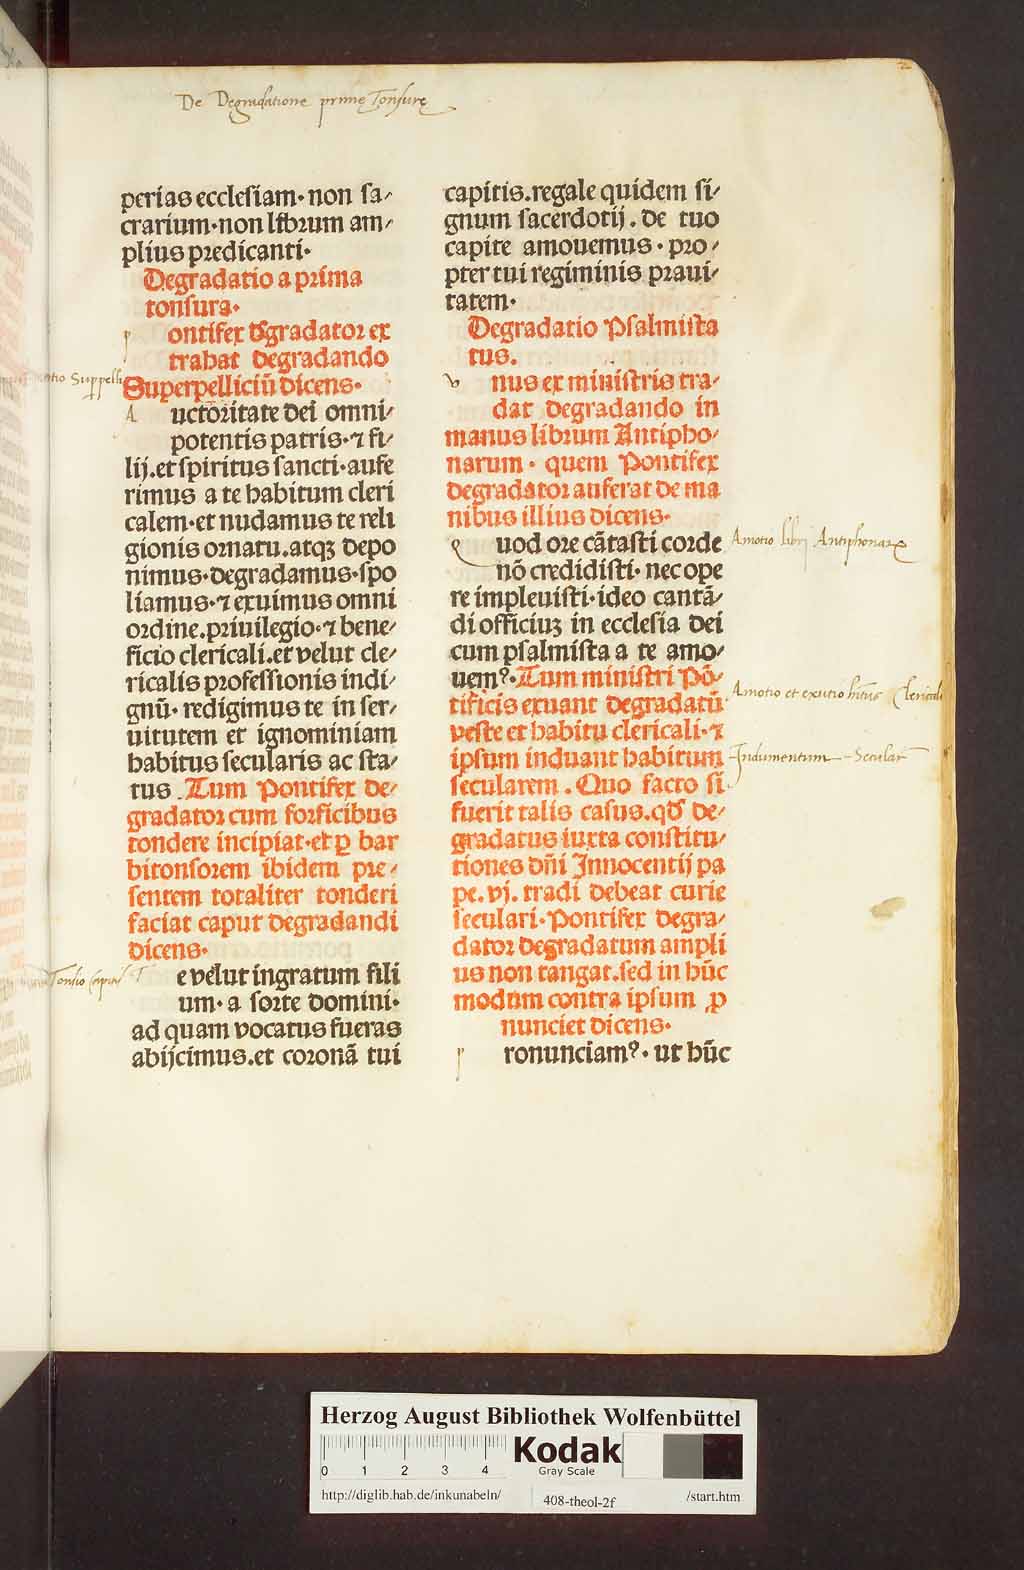 De Degradatione prime Tonsurę
perias ecclesiam· non sa⸗
crarium·non librum am⸗
plius predicanti·
Degradatio a prima
tonsura·
p ontifex degradator ex
trahat degradando
Superpelliciū dicens·
A uctoritate dei omni⸗
potentis patris·⁊ fi⸗
lij.et spiritus sancti·aufe
rimus a te habitum cleri
calem·et nudamus te reli
gionis ornatu.atqꝫ depo
nimus·degradamus·spo
liamus·⁊ exuimus omni
ordine.priuilegio·⁊ bene⸗
ficio clericali.et velut cle⸗
ricalis professionis indi⸗
gnū· redigimus te in ser⸗
uitutem et ignominiam
habitus secularis ac sta⸗
tus .Tum Pontifex de⸗
gradator cum forficibus
tondere incipiat·et ꝑ bar
bitonsorem ibidem pre⸗
sentem totaliter tonderi
faciat caput degradandi
dicens·
Tonsio capitis
T e velut ingratum fili
um· a sorte domini·
ad quam vocatus fueras
abijcimus.et coronā tui
capitis.regale quidem si⸗
gnum sacerdotij. de tuo
capite amouemus · pro⸗
pter tui regiminis praui⸗
tatem·
Degradatio Psalmista
tus.
v nus ex ministris tra⸗
dat degradando in
manus librum Antipho⸗
narum· quem Pontifex
degradator auferat de ma
nibus illius dicens·
q uod ore cātasti corde
nō credidisti· nec ope
re impleuisti·ideo cantā⸗
di officiuꝫ in ecclesia dei
cum psalmista a te amo⸗
uemꝰ·Tum ministri Pō⸗
tificis exuant degradatū
veste et habitu clericali·⁊
ipsum induant habitum
secularem . Quo facto si
fuerit talis casus.qđ de⸗
gradatus iuxta constitu⸗
tiones dn̄i Innocentij pa
pe.vj. tradi debeat curie
seculari·Pontifex degra⸗
dator degradatum ampli
us non tangat.sed in hūc
modum contra ipsum ꝓ
nunciet dicens·
p ronunciamꝰ· ut hūc
Amotio libri Antiphonarꝝ
Amotio et exutio hitus Clericali
Indumentum Secular
Herzog August Bibliothek Wolfenbüttel
0 1 2 3 4
Kodak
Gray Scale
http://diglib.hab.de/inkunabeln/
408-theol-2f
/start.htm